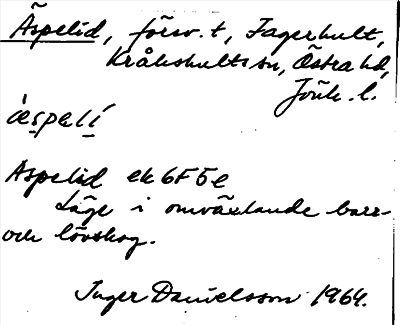 Äspelid, försv. t, Fagerhult,
Kråkshults sn, Östra hd,
Jönk. l.
æspəlí
Aspelid ek 6F5e
Läge i omväxlande barr-
och lövskog.
Inger Danielsson 1964.